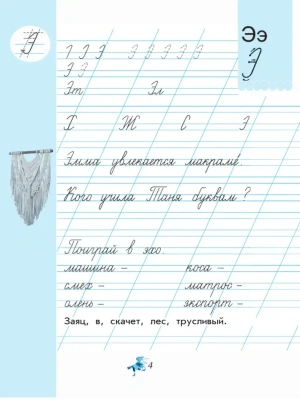 Ээ
Э
Э
1 Э Э Э Э Э Э Э
Э Э
Эт Эл
Х Ж С Э
Эмма увлекается макраме.
Кого учила Таня буквам?
Поиграй в эхо.
машина – коса –
смех – матрос –
олень – экспорт –
Заяц, в, скачет, лес, трусливый.
4